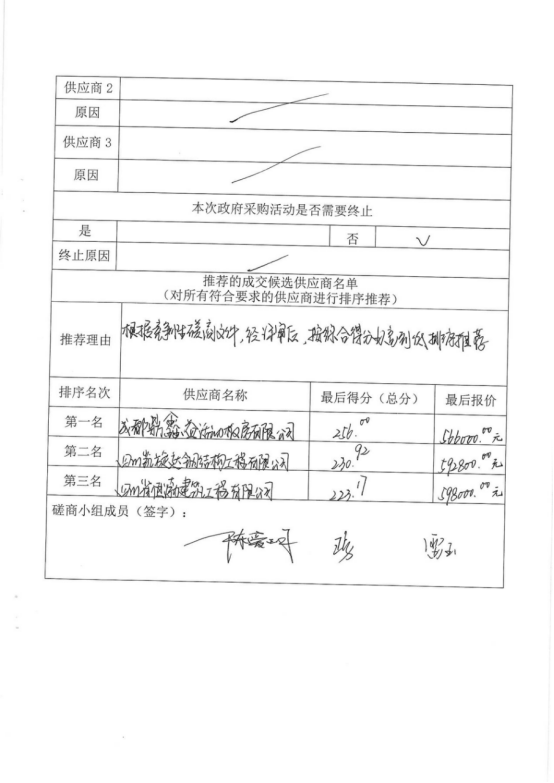 供应商2
原因
供应商3
原因
本次政府采购活动是否需要终止
是 否 √
终止原因
推荐的成交候选供应商名单
（对所有符合要求的供应商进行排序推荐）
推荐理由 根据竞争性磋商文件，经评审后，按综合得分由高到低排序推荐
排序名次 供应商名称 最后得分（总分） 最后报价
第一名 成都鼎鑫益活动板房有限公司 256.00 566000.00元
第二名 四川凯旋达钢结构工程有限公司 230.92 592800.00元
第三名 四川 建筑工程有限公司 223.17 598000.00元
磋商小组成员（签字）：